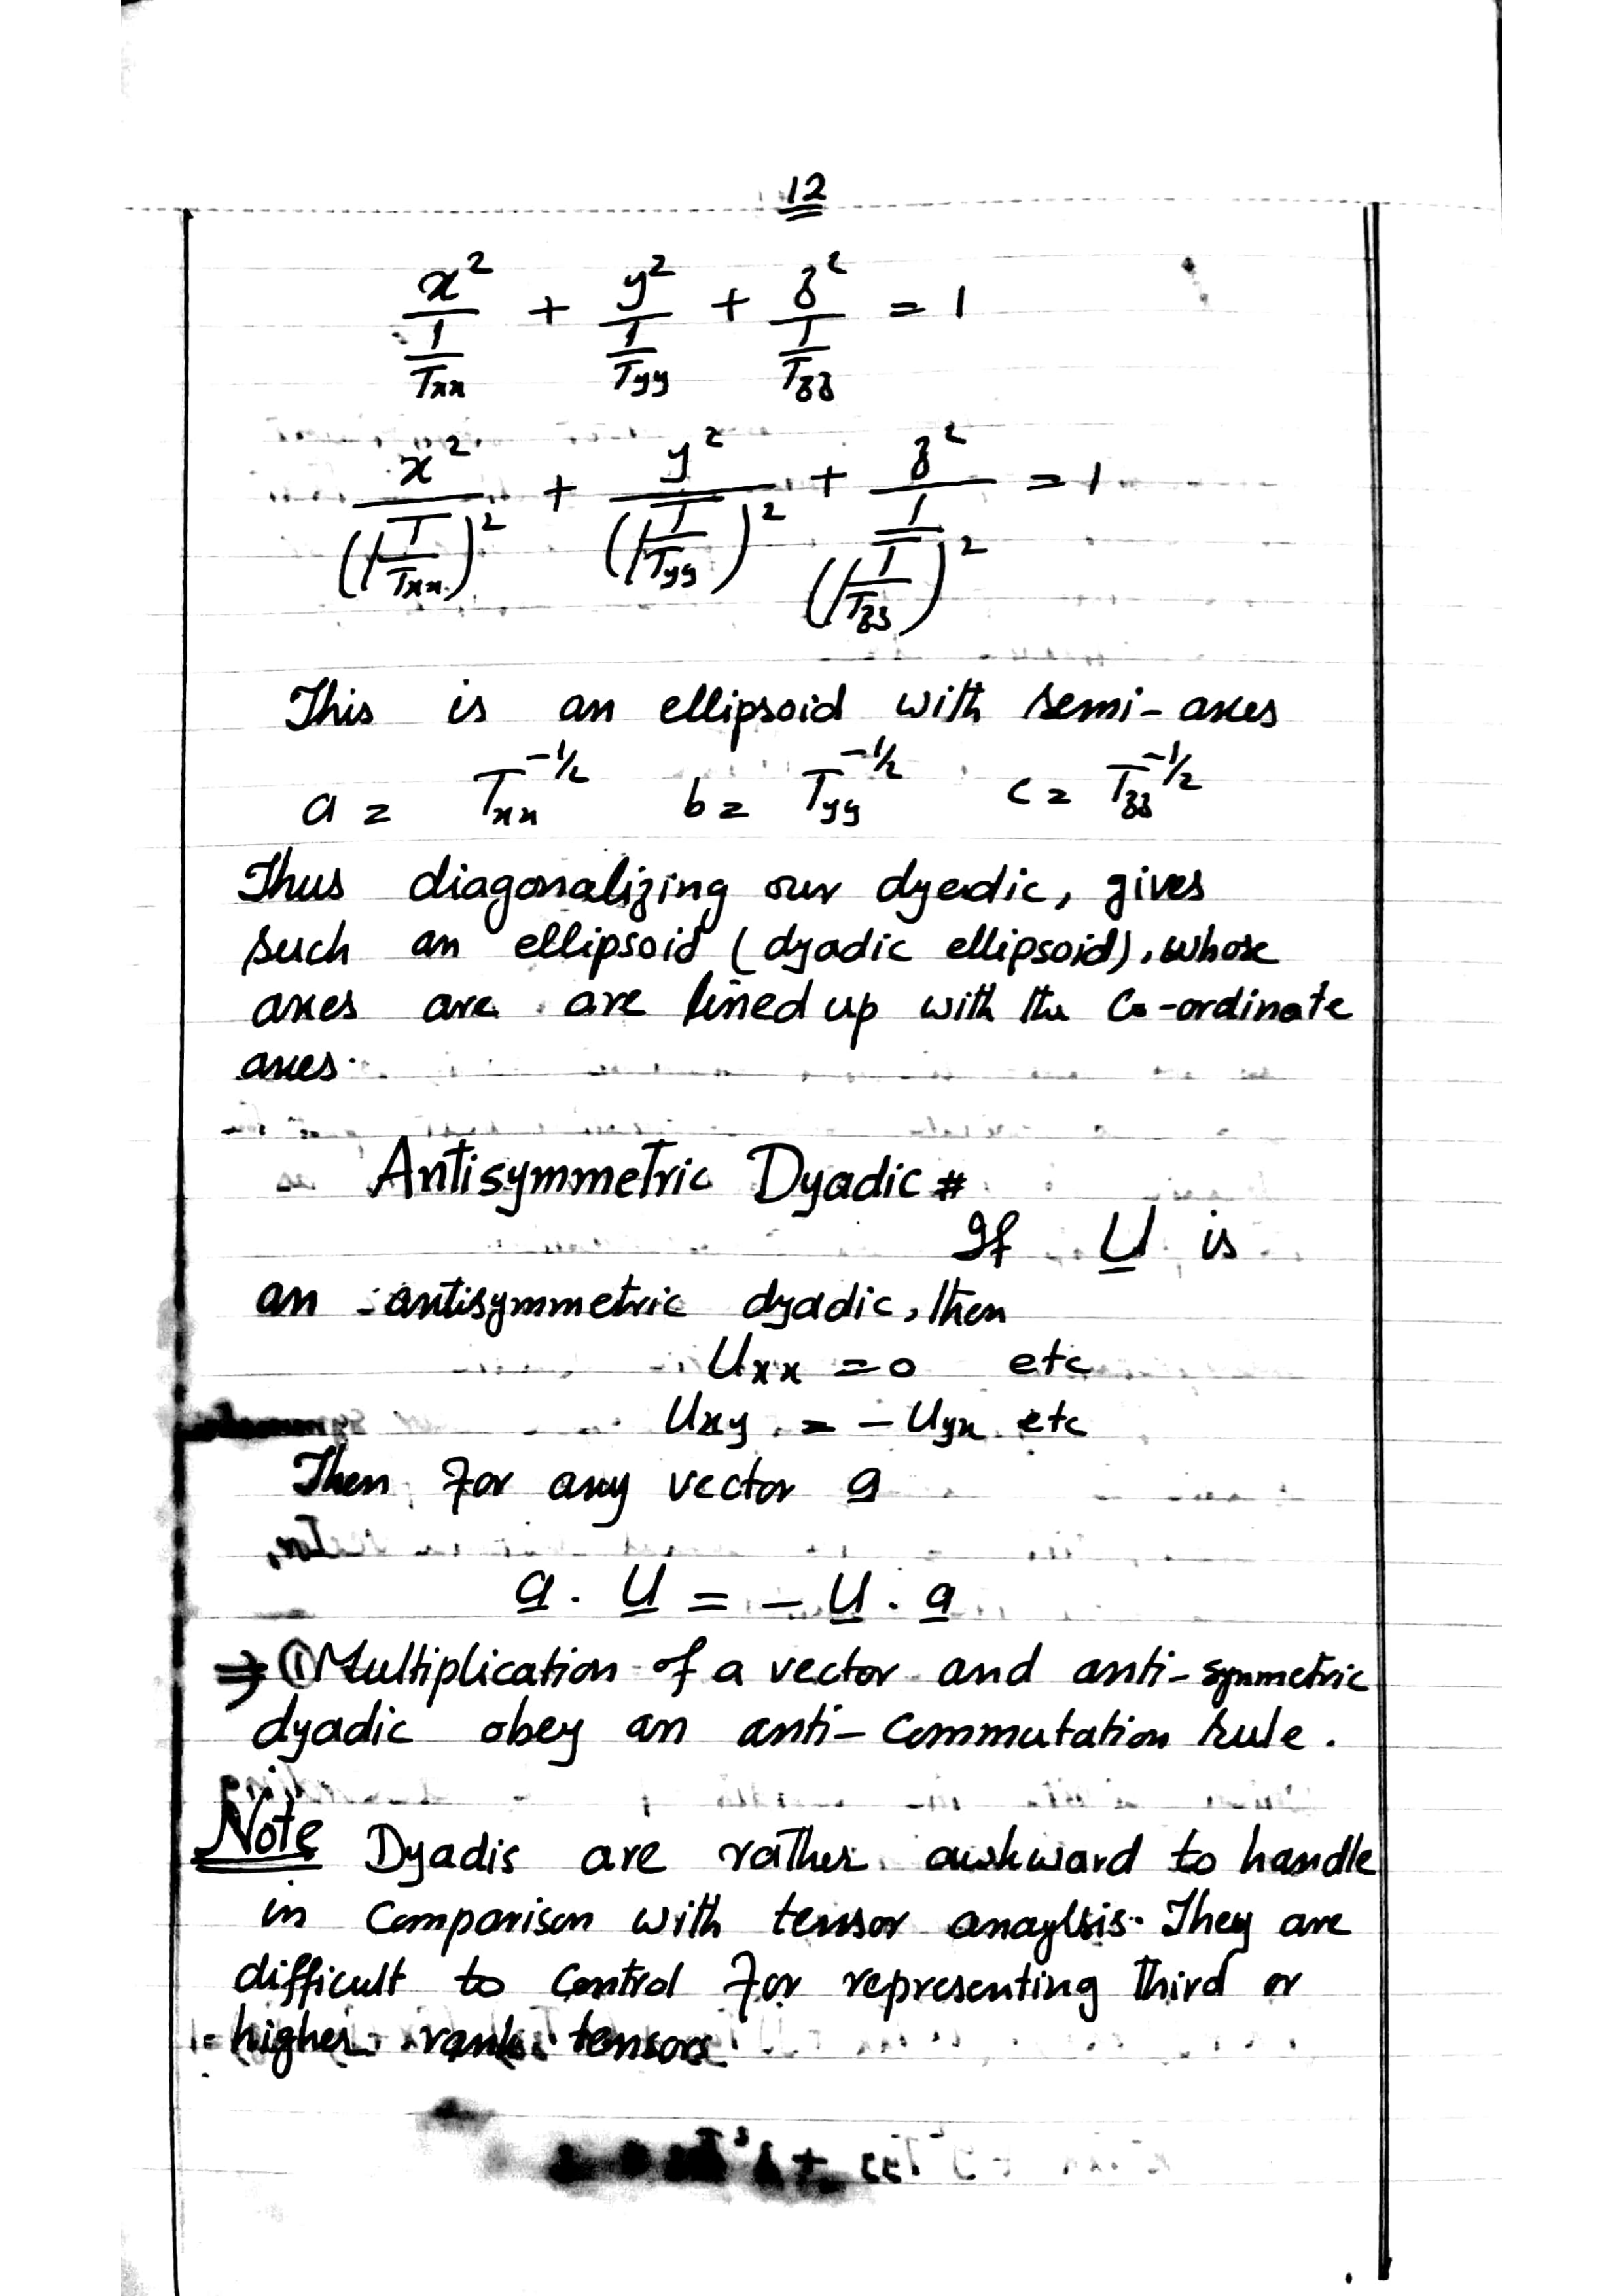 12
x²/(1/Txx) + y²/(1/Tyy) + z²/(1/Tzz) = 1
x²/(√(1/Txx))² + y²/(√(1/Tyy))² + z²/(√(1/Tzz))² = 1
This is an ellipsoid with semi-axes
a = Txx^-1/2 b = Tyy^-1/2 c = Tzz^-1/2
Thus diagonalizing our dyadic, gives
such an ellipsoid (dyadic ellipsoid), whose
axes are are lined up with the Co-ordinate
axes.
Antisymmetric Dyadic #
If U is
an antisymmetric dyadic, then
Uxx = 0 etc
Uxy = - Uyx etc
Then for any vector a
a . U = - U . a
⇒ ① Multiplication of a vector and anti-symmetric
dyadic obey an anti-commutation rule.
Note Dyadis are rather awkward to handle
in Comparison with tensor anaylsis. They are
difficult to Control for representing third or
higher rank tensors